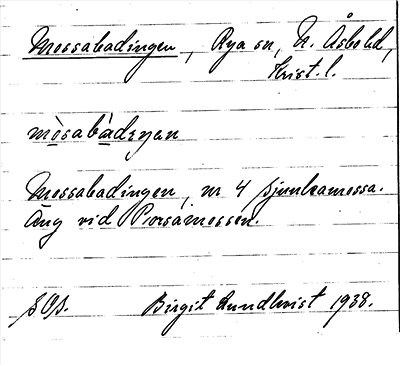 Mossabadingen, Rya sn, N. Åsbo hd,
Krist. l.
mòsabàdıŋan
Mossabadingen, nr 4 Sjunkamossa.
Äng vid Porsamossen.
Birgit Lundkvist 1938.